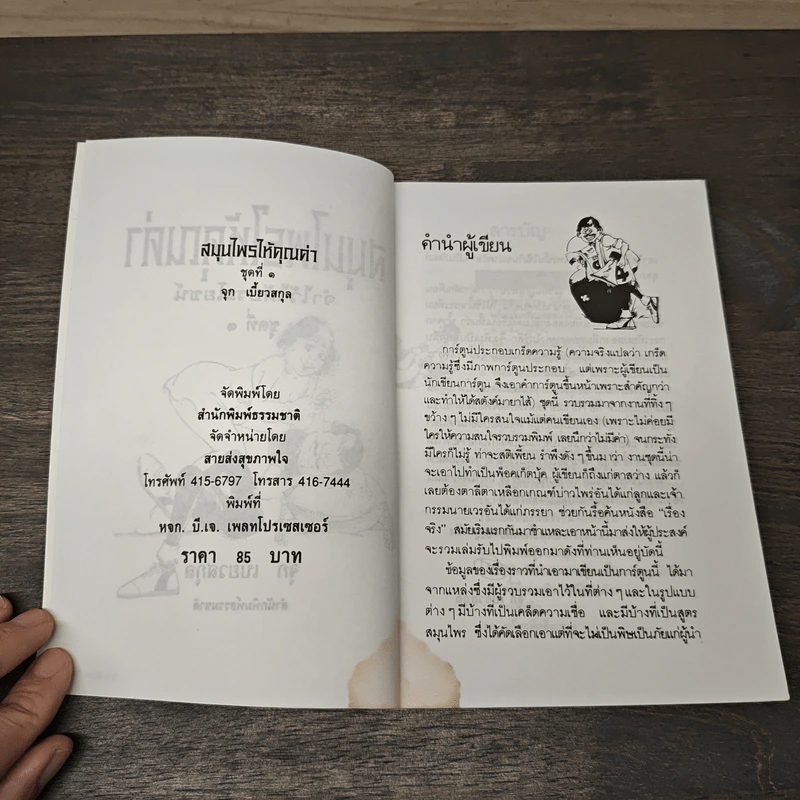 สมุนไพรให้คุณค่า
ชุดที่ ๑
จุก เบี้ยวสกุล
จัดพิมพ์โดย
สำนักพิมพ์ธรรมชาติ
จัดจำหน่ายโดย
สายส่งสุขภาพใจ
โทรศัพท์ 415-6797 โทรสาร 416-7444
พิมพ์ที่
หจก. บี.เจ. เพลทโปรเซสเซอร์
ราคา 85 บาท
คำนำผู้เขียน
การ์ตูนประกอบเกร็ดความรู้ (ความจริงแปลว่า เกร็ด
ความรู้ซึ่งมีภาพการ์ตูนประกอบ แต่เพราะผู้เขียนเป็น
นักเขียนการ์ตูน จึงเอาคำการ์ตูนขึ้นหน้าเพราะสำคัญกว่า
และทำให้ได้สตังค์มายาไส้) ชุดนี้ รวบรวมมาจากงานที่ทิ้ง ๆ
ขว้าง ๆ ไม่มีใครสนใจแม้แต่คนเขียนเอง (เพราะไม่ค่อยมี
ใครให้ความสนใจรวบรวมพิมพ์ เลยนึกว่าไม่มีค่า) จนกระทั่ง
มีใครก็ไม่รู้ ท่าจะสติเฟื้อน รำพึงดัง ๆ ขึ้นมาว่า งานชุดนี้น่า
จะเอาไปทำเป็นพ็อคเก็ตบุ้ค ผู้เขียนก็ถึงแก่ตาสว่าง แล้วก็
เลยต้องตาลีตาเหลือกเกณฑ์บ่าวไพร่อันได้แก่ลูกและเจ้า
กรรมนายเวรอันได้แก่ภรรยา ช่วยกันรื้อค้นหนังสือ "เรื่อง
จริง" สมัยเริ่มแรกกันมาชำแหละเอาหน้านี้มาส่งให้ผู้ประสงค์
จะรวมเล่มรับไปพิมพ์ออกมาดังที่ท่านเห็นอยู่บัดนี้
ข้อมูลของเรื่องราวที่นำเอามาเขียนเป็นการ์ตูนนี้ ได้มา
จากแหล่งซึ่งมีผู้รวบรวมเอาไว้ในที่ต่าง ๆ และในรูปแบบ
ต่าง ๆ มีบ้างที่เป็นเคล็ดความเชื่อ และมีบ้างที่เป็นสูตร
สมุนไพร ซึ่งได้คัดเลือกเอาแต่ที่จะไม่เป็นพิษเป็นภัยแก่ผู้นำ